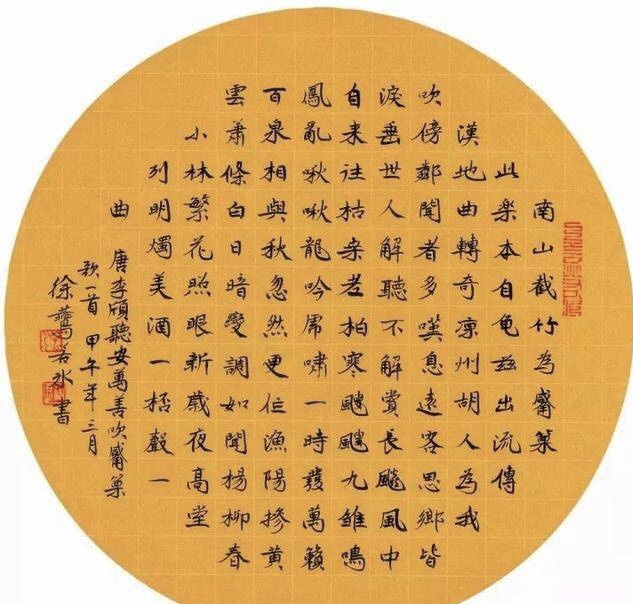 南山截竹為觱篥
此樂本自龟兹出流傳
漢地曲轉奇凉州胡人為我
吹傍鄰聞者多嘆息遠客思鄉皆
淚垂世人解聽不解賞長飇風中
自来往枯桒老柏寒颼飀九雏鳴
鳳亂啾啾龍吟虎嘯一時發萬籟
百泉相與秋忽然更作漁陽摻黄
雲蕭條白日暗變調如聞揚柳春
小林繁花照眼新歲夜高堂
列明燭美酒一杯聲一
曲
唐李頎聽安萬善吹觱篥
歌一首 甲午年三月
徐 若水書